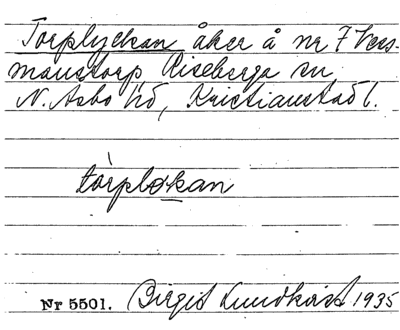 Torplyckan åker å nr 7 Vers-
manstorp Riseberga sn
N. Asbo hd, Kristianstad l.
tòrpløkan
Nr 5501. Birgit Lundkvist 1935